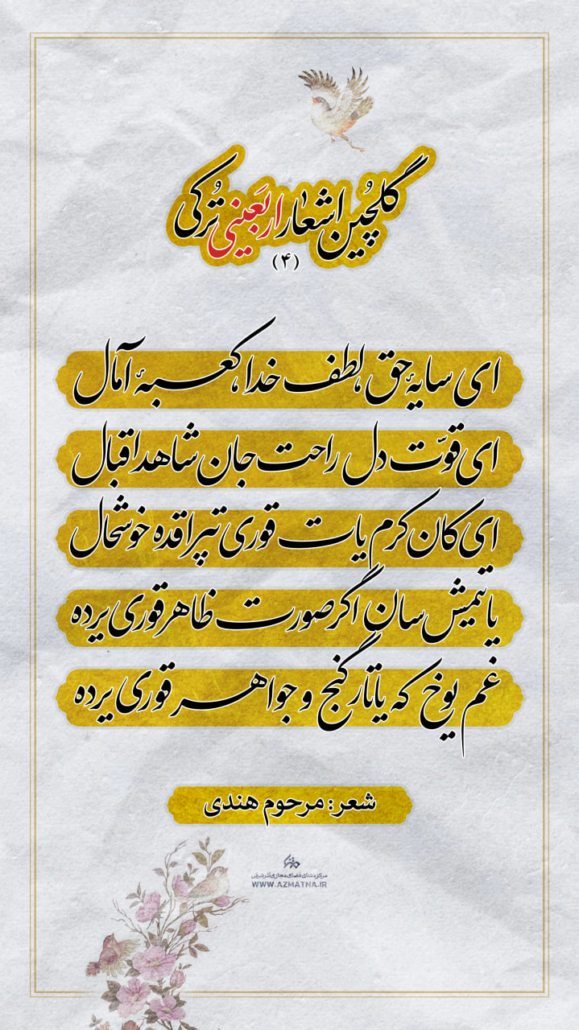 گلچین اشعار اربعینی تُرکی
(۴)
ای سایهٔ حق، لطف خدا، کعبهٔ آمال
ای قوّت دل راحت جان شاهد اقبال
ای کان کرم یات قوری تپراقده خوشحال
یاتیمیش سان اگر صورت ظاهر قوری یرده
غم یوخ که یاتار گنج و جواهر قوری یرده
شعر: مرحوم هندی
WWW.AZMATHA.IR